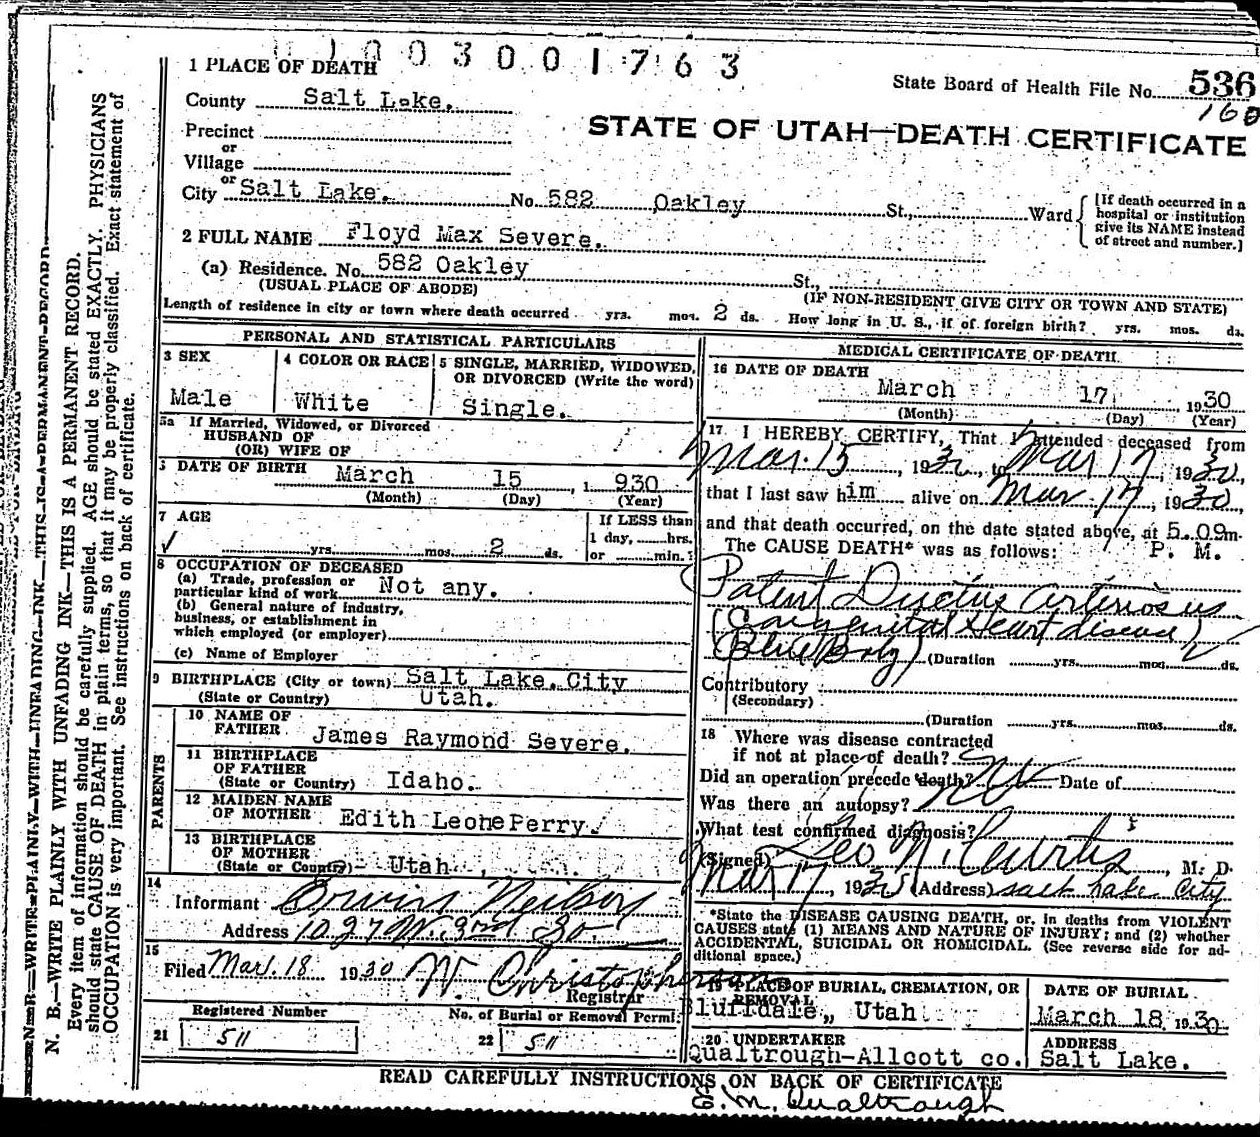 0 0 3 0 0 1 7 6 3
1 PLACE OF DEATH
State Board of Health File No. 536
160
County Salt Lake.
STATE OF UTAH—DEATH CERTIFICATE
Precinct
or
Village
or
City Salt Lake. No. 582 Oakley St., Ward
[If death occurred in a
hospital or institution
give its NAME instead
of street and number.]
2 FULL NAME Floyd Max Severe.
(a) Residence. No. 582 Oakley St.,
(USUAL PLACE OF ABODE) (IF NON-RESIDENT GIVE CITY OR TOWN AND STATE)
Length of residence in city or town where death occurred yrs. mos. 2 ds. How long in U. S., if of foreign birth? yrs. mos. ds.
PERSONAL AND STATISTICAL PARTICULARS
3 SEX
Male
4 COLOR OR RACE
White
5 SINGLE, MARRIED, WIDOWED,
OR DIVORCED (Write the word)
Single.
5a If Married, Widowed, or Divorced
HUSBAND OF
(OR) WIFE OF
DATE OF BIRTH March 15, 1930
(Month) (Day) (Year)
7 AGE
yrs. mos. 2 ds.
If LESS than
1 day, hrs.
or min.
8 OCCUPATION OF DECEASED
(a) Trade, profession or
particular kind of work Not any.
(b) General nature of industry,
business, or establishment in
which employed (or employer)
(c) Name of Employer
9 BIRTHPLACE (City or town) Salt Lake City
(State or Country) Utah.
PARENTS
10 NAME OF
FATHER James Raymond Severe.
11 BIRTHPLACE
OF FATHER
(State or Country) Idaho.
12 MAIDEN NAME
OF MOTHER Edith Leone Perry.
13 BIRTHPLACE
OF MOTHER
(State or Country) Utah
14
Informant Erwin Neilson
Address 1027 W. 3rd So.
15
Filed Mar. 18 1930 W. Christopherson
Registrar
Registered Number
21 511
No. of Burial or Removal Permit
22 511
MEDICAL CERTIFICATE OF DEATH
16 DATE OF DEATH
March 17 1930
(Month) (Day) (Year)
17 I HEREBY CERTIFY, That I attended deceased from
Mar. 15, 1930, to Mar 17 1930,
that I last saw him alive on Mar 17, 1930,
and that death occurred, on the date stated above, at 5.09m.
The CAUSE DEATH* was as follows: P. M.
Patent Ductus Arteriosus
(Congenital Heart disease)
(Blue Boy) (Duration yrs. mos. 2 ds.
Contributory
(Secondary)
(Duration yrs. mos. ds.
18 Where was disease contracted
if not at place of death?
Did an operation precede death? No Date of
Was there an autopsy?
What test confirmed diagnosis?
(Signed) Geo N. Curtis, M. D.
Mar 17, 1930 (Address) Salt Lake City
*State the DISEASE CAUSING DEATH, or, in deaths from VIOLENT
CAUSES state (1) MEANS AND NATURE OF INJURY; and (2) whether
ACCIDENTAL, SUICIDAL OR HOMICIDAL. (See reverse side for ad-
ditional space.)
19 PLACE OF BURIAL, CREMATION, OR
REMOVAL
Bluffdale, Utah
DATE OF BURIAL
March 18 1930
20 UNDERTAKER
Qualtrough-Allcott co.
ADDRESS
Salt Lake.
READ CAREFULLY INSTRUCTIONS ON BACK OF CERTIFICATE
E. M. Qualtrough
N. B.—WRITE PLAINLY WITH UNFADING INK—THIS IS A PERMANENT RECORD.
Every item of information should be carefully supplied. AGE should be stated EXACTLY. PHYSICIANS
should state CAUSE OF DEATH in plain terms, so that it may be properly classified. Exact statement of
OCCUPATION is very important. See instructions on back of certificate.